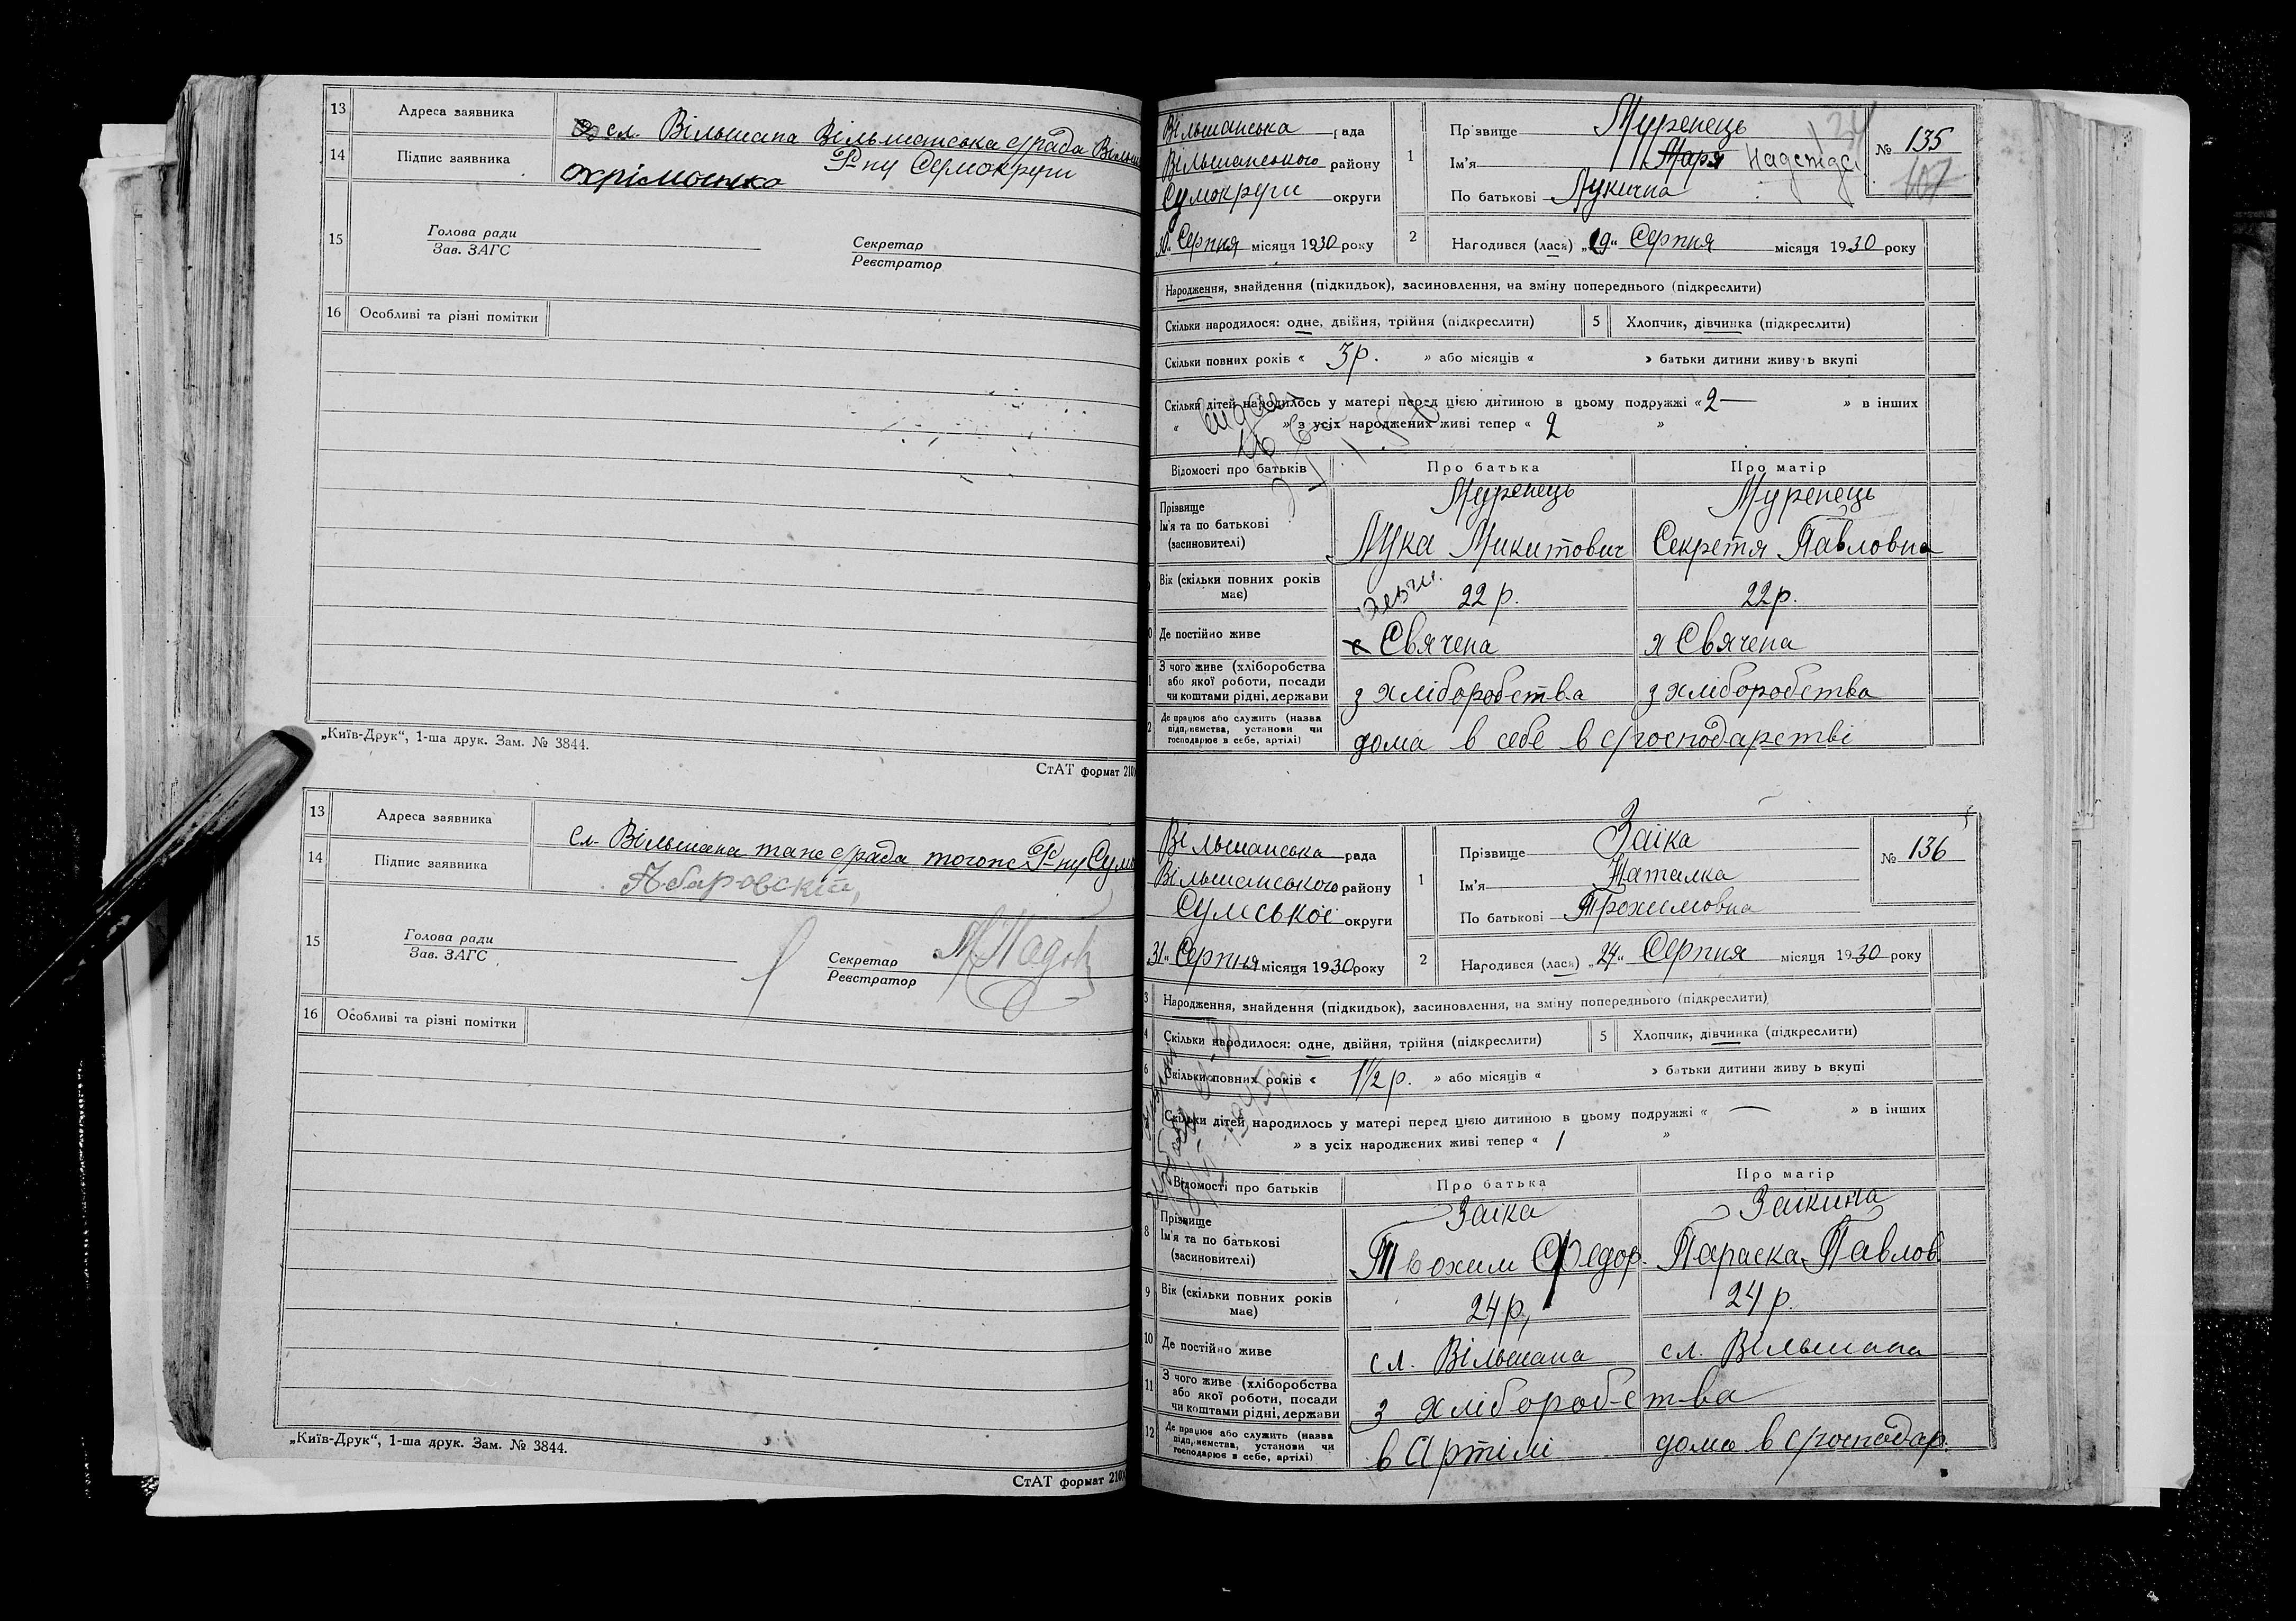 13 Адреса заявника сл. Вільшана Вільшанська с/рада Вільш
14 Підпис заявника Р-ну Сумокруги
Охріменко
15 Голова ради Секретар
Зав. ЗАГС Реєстратор
16 Особливі та різні помітки
„Київ-Друк“, 1-ша друк. Зам. № 3844.
СтАТ формат 210
13 Адреса заявника сл. Вільшана таж с/рада тогож Р-ну Сум
14 Підпис заявника
15 Голова ради Секретар
Зав. ЗАГС Реєстратор
16 Особливі та різні помітки
„Київ-Друк“, 1-ша друк. Зам. № 3844.
СтАТ формат 210
Вільшанська рада
Вільшанського району
Сумокруги округи
30 „ Серпня місяця 1930 року
1 Прізвище Муренець
Ім'я Маря Надежда
По батькові Лукична
№ 135
107
2 Народився (лася) „19“ Серпня місяця 1930 року
Народження, знайдення (підкидьок), засиновлення, на зміну попереднього (підкреслити)
Скільки народилося: одне, двійня, трійня (підкреслити) 5 Хлопчик, дівчинка (підкреслити)
Скільки повних років « 3 р. » або місяців « » батьки дитини живуть вкупі
Скільки дітей народилось у матері перед цією дитиною в цьому подружжі « 2 — » в інших
« » з усіх народжених живі тепер « 2 »
Відомості про батьків Про батька Про матір
Прізвище Муренець Муренець
Ім'я та по батькові Лука Микитович Секретя Павловна
(засиновителі)
Вік (скільки повних років має) 22 р. 22 р.
Де постійно живе х Свячена х Свячена
З чого живе (хліборобства
або якої роботи, посади
чи коштами рідні, держави з хліборобства з хліборобства
Де працює або служить (назва
підприємства, установи чи
господарює в себе, артілі) дома в себе в с/господарстві
Вільшанська рада
Вільшанського району
Сумської округи
31 „ Серпня місяця 1930 року
1 Прізвище Заїка
Ім'я Наталка
По батькові Трохимовна
№ 136
2 Народився (лася) „24“ Серпня місяця 1930 року
3 Народження, знайдення (підкидьок), засиновлення, на зміну попереднього (підкреслити)
4 Скільки народилося: одне, двійня, трійня (підкреслити) 5 Хлопчик, дівчинка (підкреслити)
6 Скільки повних років « 1 1/2 р. » або місяців « » батьки дитини живуть вкупі
Скільки дітей народилось у матері перед цією дитиною в цьому подружжі « — » в інших
» з усіх народжених живі тепер « 1 »
Відомості про батьків Про батька Про матір
8 Прізвище Заіка Заікина
Ім'я та по батькові Трохим Федор. Параска Павлов.
(засиновителі)
9 Вік (скільки повних років має) 24 р, 24 р.
10 Де постійно живе сл. Вільшана сл. Вільшана
11 З чого живе (хліборобства
або якої роботи, посади
чи коштами рідні, держави з хліборобства
12 Де працює або служить (назва
підприємства, установи чи
господарює в себе, артілі) в Артілі дома в с/господар.